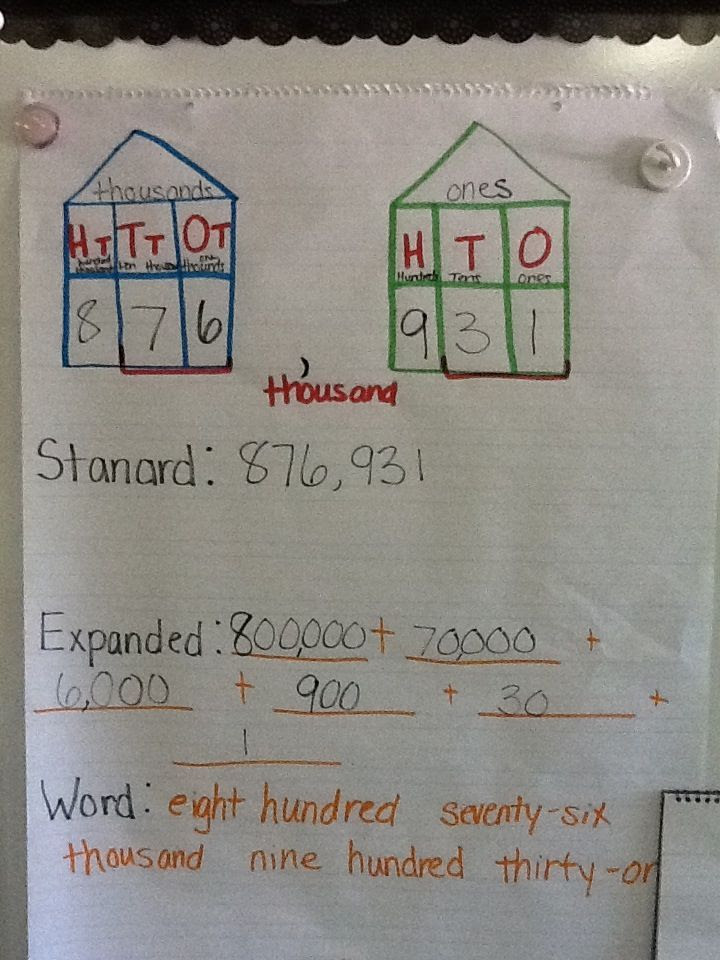 thousands ones
HT TT OT H T O
hundred thousand ten thousand one thounds Hundreds Tens Ones
8 7 6 9 3 1
,
thousand
Stanard: 876,931
Expanded: 800,000 + 70,000 +
6,000 + 900 + 30 +
1
Word: eight hundred seventy-six
thousand nine hundred thirty-on